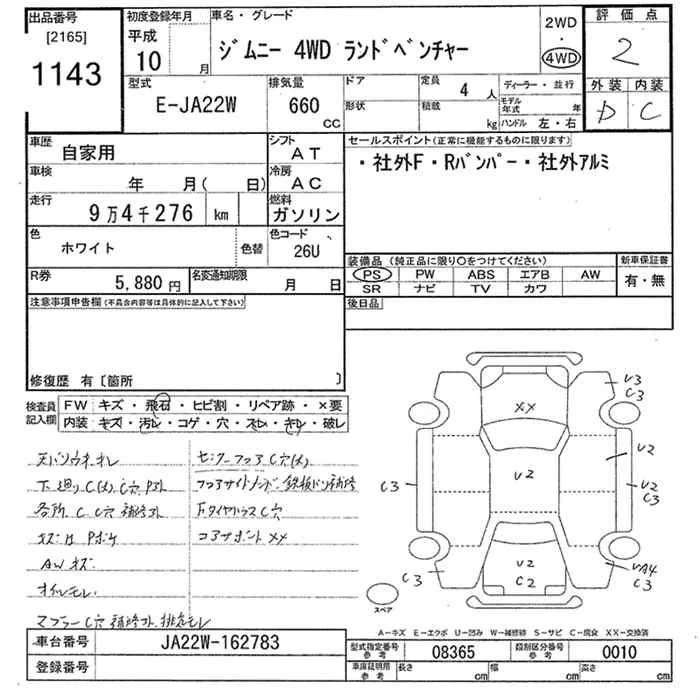 出品番号
[2165]
1143
初度登録年月
平成
10 月
車名・グレード
ジムニー 4WD ランドベンチャー
2WD
・
4WD
評価点
2
外装 内装
D C
型式
E-JA22W
排気量
660 CC
ドア
形状
定員
4 人
積載
kg
ディーラー・並行
モデル年式 年
ハンドル 左・右
車歴
自家用
シフト
AT
車検
年 月( 日)
冷房
AC
走行
9万4千276 km
燃料
ガソリン
色
ホワイト
色替
色コード
26U
R券
5,880 円
名変通知期限
月 日
セールスポイント(正常に機能するものに限ります)
・社外F・Rバンパー・社外アルミ
装備品(純正品に限り○をつけてください)
PS PW ABS エアB AW
SR ナビ TV カワ
新車保証書
有・無
後日品
注意事項申告欄(不具合内容等は具体的に記入して下さい)
修復歴 有〔箇所 〕
検査員記入欄
FW キズ・飛石・ヒビ割・リペア跡・×要
内装 キズ・汚レ・コゲ・穴・スレ・キレ・破レ
下廻り C(大) C穴
各所 C C穴 補修外
AW キズ
オイルモレ
マフラー C穴 補修外 排気モレ
コアサポート XX
V3
C3
XX
V2
V2
V2
C3
C3
V2
C2
C3
VA4
C3
スペア
A-キズ E-エクボ U-凹み W-補修跡 S-サビ C-腐食 XX-交換済
車台番号
JA22W-162783
登録番号
型式指定番号
参考
08365
類別区分番号
参考
0010
車庫証明用
参考
長さ cm
幅 cm
高さ cm